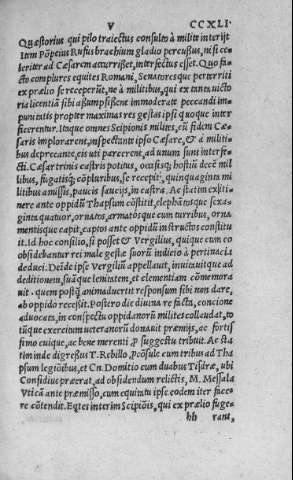 V CCXLI
Quæstorius qui pilo traiectus consulto à milite interijt
Item Põpeius Rufus brachium gladio percussus, ni si ce
leriter ad Cæsarem accurrißet, interfectus esset. Quo fa-
cto complures equites Romani, Senatoresque perterriti
ex prælio se receperũt, ne à militibus, qui ex tanta victo
ria licentiã sibi aßumpsißent immoderate peccandi im-
punitatis propter maximas res gestas ipsi quoque inter
ficerentur. Itaque omnes Scipionis milites, cũ fidem Cæ-
saris implorarent, inspectante ipso Cæsare, & à militi-
bus deprecante, eis uti parcerent, ad unum sunt interfe-
cti. Cæsar trinis castris potitus, occisisq; hostiũ decẽ mil
libus, fugatisq; cõpluribus, se recepit, quinquaginta mi
litibus amissis, paucis saucijs, in castra. Ac statim ex iti-
nere ante oppidũ Thapsum cõstitit, elephãtosque sexa-
ginta quatuor, ornatos, armatósque cum turribus, orna-
mentisque capit, captos ante oppidũ instructos constitu
it. Id hoc consilio, si posset & Vergilius, quique cum eo
obsidebantur rei male gestæ suorũ indicio à pertinacia
deduci. Deide ipse Vergiliũ appellauit, inuitauitque ad
deditionem, suãque lenitatem, et clementiam cõmemora
uit. quem postq̃ animaduertit responsum sibi non dare,
ab oppido receßit. Postero die diuina re facta, concione
aduocata, in conspectu oppidanorũ milites collaudat, to
tũque exercitum ueteranorũ donauit præmijs, ac fortis
simo cuique, ac bene merenti, p suggestu tribuit. Ac sta
tim inde digressus T. Rebillo, Pcõsule cum tribus ad Tha
psum legiõibus, et Cn. Domitio cum duabus Tisdræ, ubi
Considius præerat, ad obsidendum relictis, M. Messala
Vticã ante præmisso, cum equitatu ipse eodem iter face-
re cõtendit. Eqtes interim Scipiõis, qui ex prælio fuge-
hh rant,